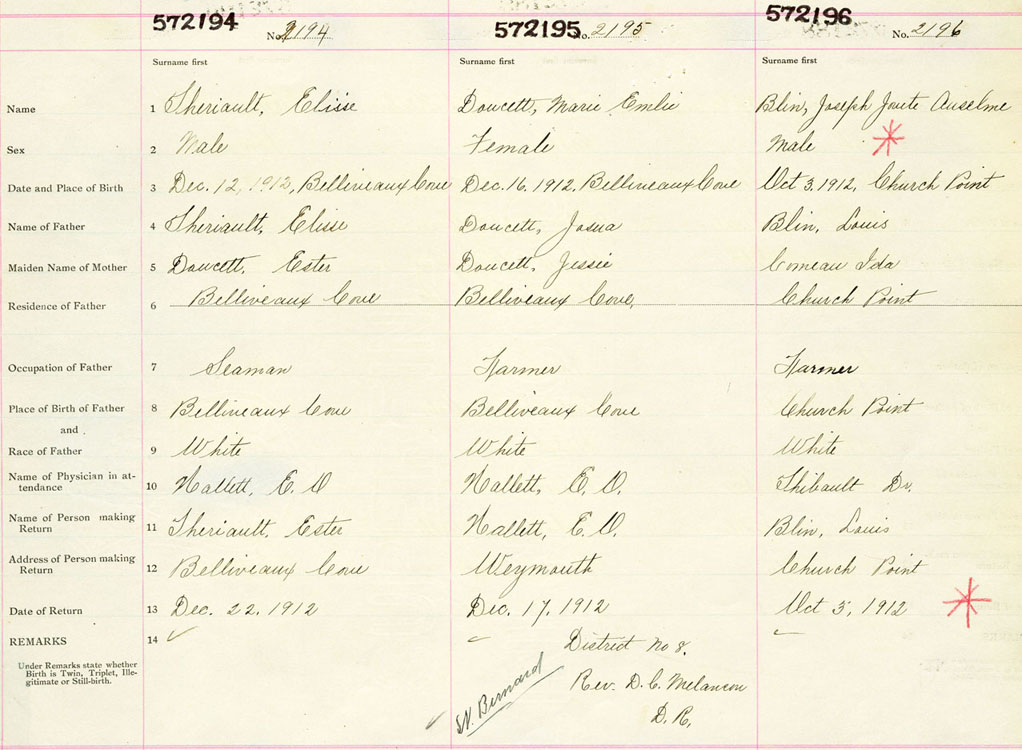 572194 No. 2194 572195 No. 2195 572196 No. 2196
Surname first Surname first Surname first
Name 1 Theriault, Elisie Doucett, Marie Emlie Blin, Joseph Anselme
Sex 2 Male Female Male
Date and Place of Birth 3 Dec. 12, 1912, Belliveaux Cove Dec. 16. 1912, Belliveaux Cove Oct 3. 1912, Church Point
Name of Father 4 Theriault, Elisie Doucett, Josua Blin, Louis
Maiden Name of Mother 5 Doucett, Ester Doucett, Jessie Comeau Ida
Residence of Father 6 Belliveaux Cove Belliveaux Cove, Church Point
Occupation of Father 7 Seaman Farmer Farmer
Place of Birth of Father 8 Belliveaux Cove Belliveaux Cove Church Point
and
Race of Father 9 White White White
Name of Physician in at-
tendance 10 Hallett, E. O Hallett, E. O. Thibault Dr.
Name of Person making
Return 11 Theriault, Ester Hallett, E. O. Blin, Louis
Address of Person making
Return 12 Belliveaux Cove Weymouth Church Point
Date of Return 13 Dec. 22, 1912 Dec. 17, 1912 Oct 3, 1912
REMARKS 14
District No 8.
Under Remarks state whether
Birth is Twin, Triplet, Ille-
gitimate or Still-birth.
Rev. D. C. Melancon
D. R.
St Bernard